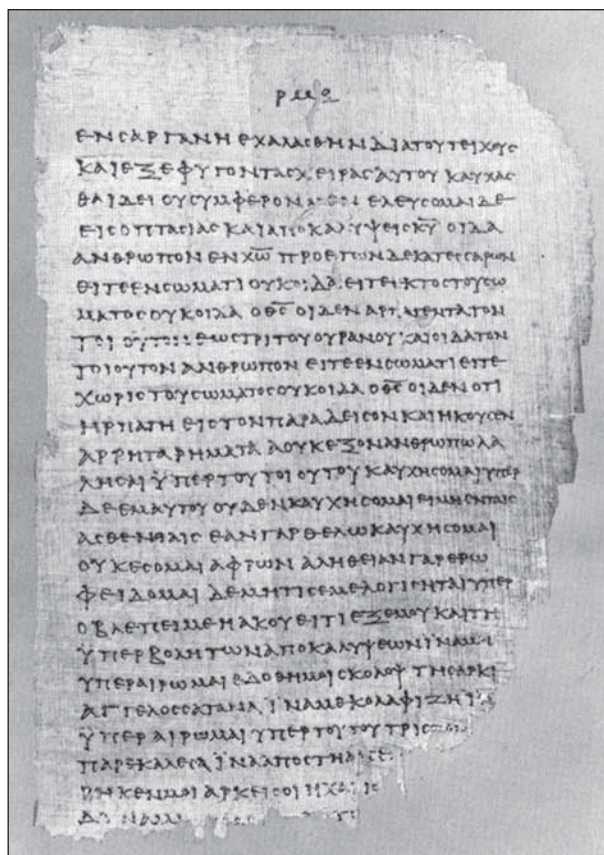 ΕΝ ΣΑΡΓΑΝΗ ΕΧΑΛΑΣΘΗΝ ΔΙΑ ΤΟΥ ΤΕΙΧΟΥΣ
ΚΑΙ ΕΞΕΦΥΓΟΝ ΤΑΣ ΧΕΙΡΑΣ ΑΥΤΟΥ ΚΑΥΧΑΣ
ΘΑΙ ΔΕΙ ΟΥ ΣΥΜΦΕΡΟΝ ΕΛΕΥΣΟΜΑΙ ΔΕ
ΕΙΣ ΟΠΤΑΣΙΑΣ ΚΑΙ ΑΠΟΚΑΛΥΨΕΙΣ Κ̅Υ̅ ΟΙΔΑ
ΑΝΘΡΩΠΟΝ ΕΝ Χ̅Ω̅ ΠΡΟ ΕΤΩΝ ΔΕΚΑΤΕΣΣΑΡΩΝ
ΕΙΤΕ ΕΝ ΣΩΜΑΤΙ ΟΥΚ ΟΙΔΑ ΕΙΤΕ ΕΚΤΟΣ ΤΟΥ ΣΩ
ΜΑΤΟΣ ΟΥΚ ΟΙΔΑ Ο Θ̅Σ̅ ΟΙΔΕΝ ΑΡΠΑΓΕΝΤΑ ΤΟΝ
ΤΟΙΟΥΤΟΝ ΕΩΣ ΤΡΙΤΟΥ ΟΥΡΑΝΟΥ ΚΑΙ ΟΙΔΑ ΤΟΝ
ΤΟΙΟΥΤΟΝ ΑΝΘΡΩΠΟΝ ΕΙΤΕ ΕΝ ΣΩΜΑΤΙ ΕΙΤΕ
ΧΩΡΙΣ ΤΟΥ ΣΩΜΑΤΟΣ ΟΥΚ ΟΙΔΑ Ο Θ̅Σ̅ ΟΙΔΕΝ ΟΤΙ
ΗΡΠΑΓΗ ΕΙΣ ΤΟΝ ΠΑΡΑΔΕΙΣΟΝ ΚΑΙ ΗΚΟΥΣΕΝ
ΑΡΡΗΤΑ ΡΗΜΑΤΑ Α ΟΥΚ ΕΞΟΝ ΑΝΘΡΩΠΩ ΛΑ
ΛΗΣΑΙ ΫΠΕΡ ΤΟΥ ΤΟΙΟΥΤΟΥ ΚΑΥΧΗΣΟΜΑΙ ΥΠΕΡ
ΔΕ ΕΜΑΥΤΟΥ ΟΥΔΕΝ ΚΑΥΧΗΣΟΜΑΙ ΕΙ ΜΗ ΕΝ ΤΑΙΣ
ΑΣΘΕΝΕΙΑΙΣ ΕΑΝ ΓΑΡ ΘΕΛΩ ΚΑΥΧΗΣΟΜΑΙ
ΟΥΚ ΕΣΟΜΑΙ ΑΦΡΩΝ ΑΛΗΘΕΙΑΝ ΓΑΡ ΕΡΩ
ΦΕΙΔΟΜΑΙ ΔΕ ΜΗ ΤΙΣ ΕΜΕ ΛΟΓΙΣΗΤΑΙ ΥΠΕΡ
Ο ΒΛΕΠΕΙ ΜΕ Η ΑΚΟΥΕΙ ΤΙ ΕΞ ΕΜΟΥ ΚΑΙ ΤΗ
ΫΠΕΡΒΟΛΗ ΤΩΝ ΑΠΟΚΑΛΥΨΕΩΝ ΪΝΑ ΜΗ
ΥΠΕΡΑΙΡΩΜΑΙ ΕΔΟΘΗ ΜΟΙ ΣΚΟΛΟΨ ΤΗ ΣΑΡΚΙ
ΑΓΓΕΛΟΣ ΣΑΤΑΝΑ ΪΝΑ ΜΕ ΚΟΛΑΦΙΖΗ Ϊ
ΫΠΕΡΑΙΡΩΜΑΙ ΥΠΕΡ ΤΟΥΤΟΥ ΤΡΙΣ
ΠΑΡΕΚΑΛΕΣΑ ΪΝΑ ΑΠΟΣΤΗ
ΡΗΚΕΝ ΜΟΙ ΑΡΚΕΙ ΣΟΙ Η ΧΑ
ΔΥΝΑΜ